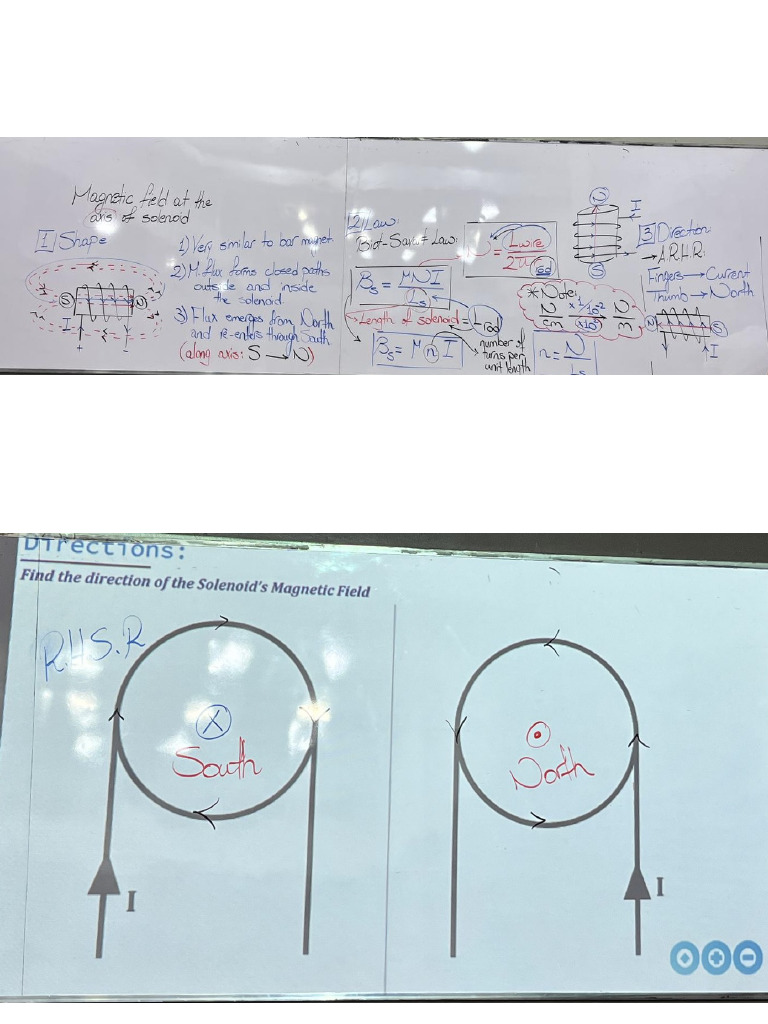 Magnetic field at the
axis of solenoid
1 Shape
1) Very similar to bar magnet
2) M. flux forms closed paths
outside and inside
the solenoid
3) Flux emerges from North
and re-enters through South
(along axis: S → N)
S
N
I
+
-
2 Law:
Biot-Savart Law:
N = Lwire / 2πr
Bs = μNI / Ls
→ Length of solenoid = Lrod
Bs = μ n I
number of
turns per
unit length
n = N / Ls
* Note:
N/cm ×1/10⁻² N/m
N
S
I
3 Direction:
→ A.R.H.R:
Fingers → Current
Thumb → North
N
S
I
Directions:
Find the direction of the Solenoid's Magnetic Field
R.H.S.R
X
South
I
North
I